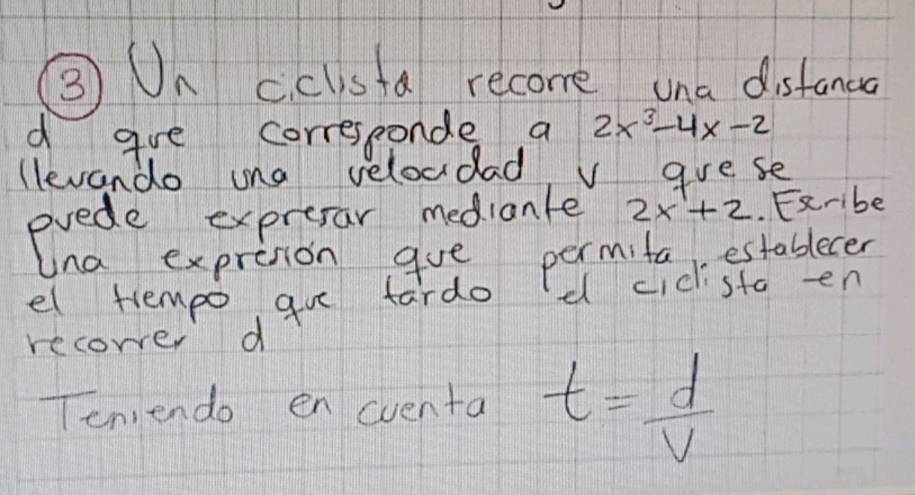 ③ Un ciclista recorre una distancia
d que corresponde a 2x³-4x-2
llevando una velocidad v que se
puede expresar mediante 2x+2. Escribe
Una expresión que permita establecer
el tiempo que tardo el ciclista en
recorrer d
Teniendo en cuenta t = d/v